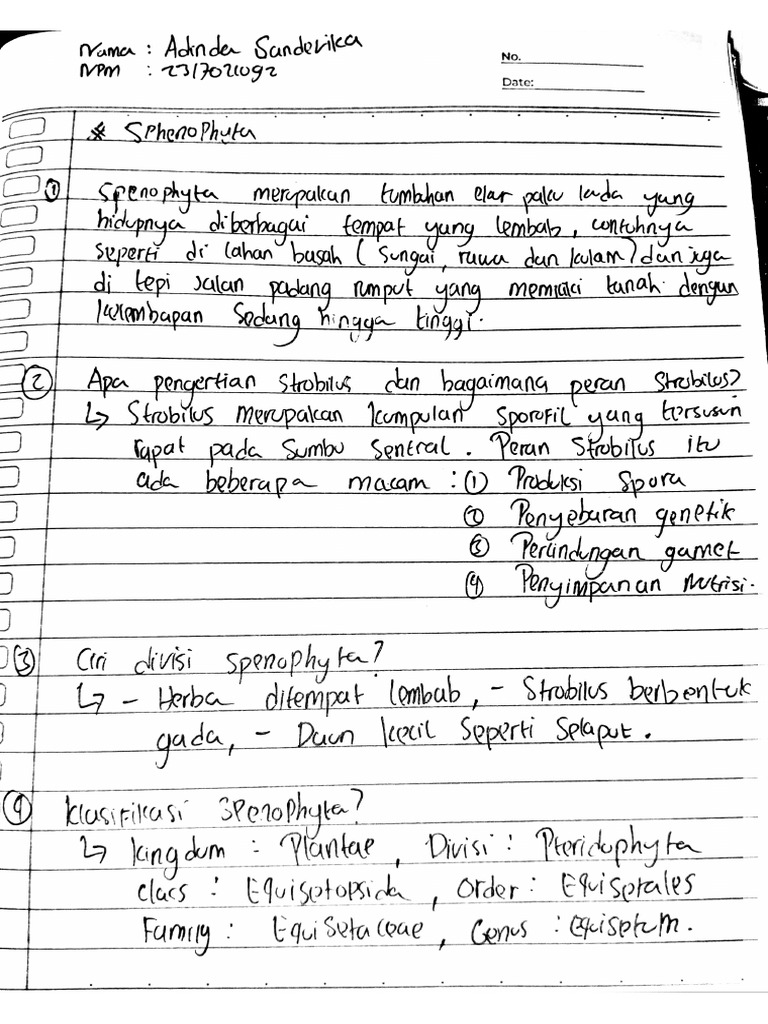 Nama : Adinda Sanderika
NPM : 2317021092
No.
Date:
* Sphenophyta
① Spenophyta merupakan tumbuhan ekor paku kuda yang
hidupnya diberbagai tempat yang lembab, contohnya
seperti di lahan basah (Sungai, rawa dan kolam) dan juga
di tepi jalan padang rumput yang memiliki tanah dengan
kelembapan Sedang hingga tinggi.
② Apa pengertian Strobilus dan bagaimana peran Strobilus?
↳ Strobilus merupakan kumpulan Sporofil yang tersusun
rapat pada Sumbu Sentral. Peran Strobilus itu
ada beberapa macam : ① Produksi Spora
② Penyebaran genetik
③ Perlindungan gamet
④ Penyimpanan Nutrisi.
③ Ciri divisi Spenophyta?
↳ - Herba ditempat lembab, - Strobilus berbentuk
gada, - Daun kecil Seperti Selaput.
④ Klasifikasi Spenophyta?
↳ kingdom : Plantae, Divisi : Pteridophyta
class : Equisetopsida, Order : Equisetales
Family : Equisetaceae, Genus : Equisetum.